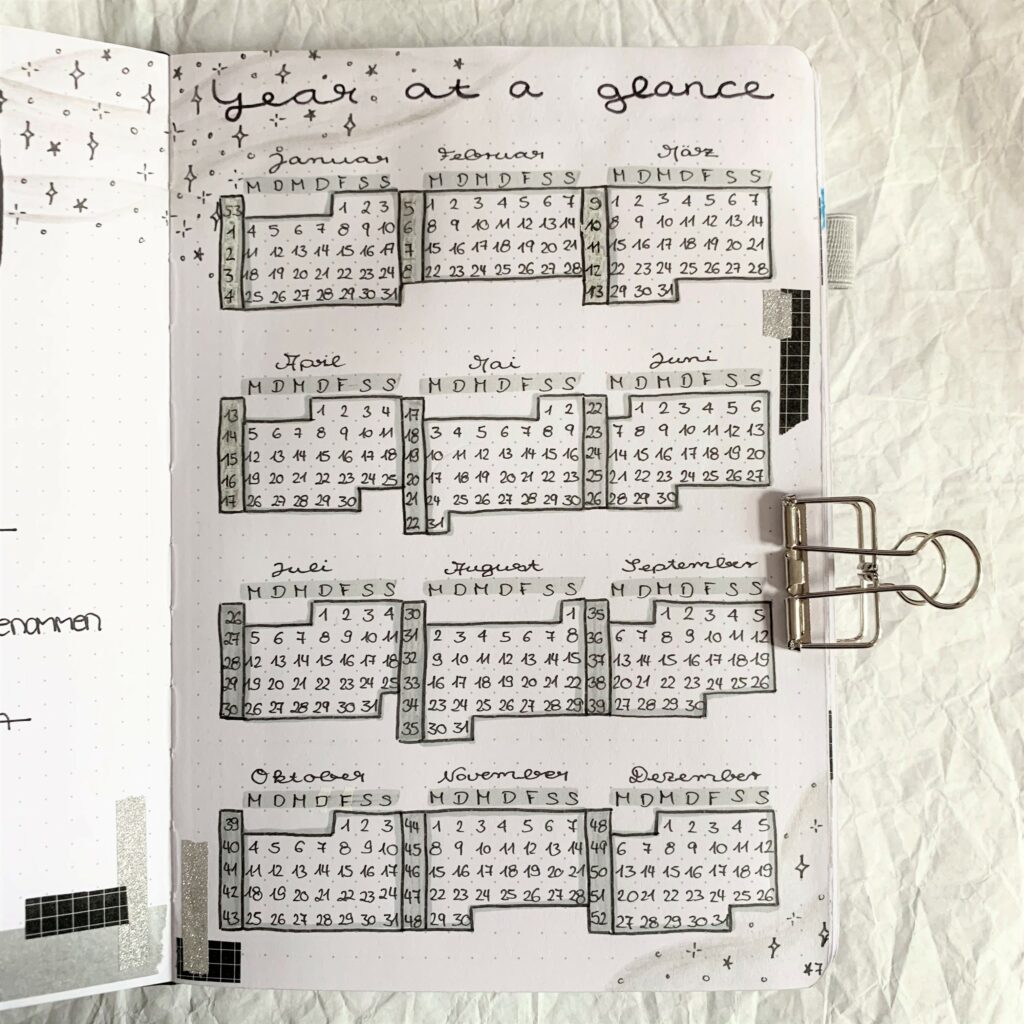 enommen
Year at a glance
Januar
M D M D F S S
53 1 2 3
1 4 5 6 7 8 9 10
2 11 12 13 14 15 16 17
3 18 19 20 21 22 23 24
4 25 26 27 28 29 30 31
Februar
M D M D F S S
5 1 2 3 4 5 6 7
6 8 9 10 11 12 13 14
7 15 16 17 18 19 20 21
8 22 23 24 25 26 27 28
März
M D M D F S S
9 1 2 3 4 5 6 7
10 8 9 10 11 12 13 14
11 15 16 17 18 19 20 21
12 22 23 24 25 26 27 28
13 29 30 31
April
M D M D F S S
13 1 2 3 4
14 5 6 7 8 9 10 11
15 12 13 14 15 16 17 18
16 19 20 21 22 23 24 25
17 26 27 28 29 30
Mai
M D M D F S S
17 1 2
18 3 4 5 6 7 8 9
19 10 11 12 13 14 15 16
20 17 18 19 20 21 22 23
21 24 25 26 27 28 29 30
22 31
Juni
M D M D F S S
22 1 2 3 4 5 6
23 7 8 9 10 11 12 13
24 14 15 16 17 18 19 20
25 21 22 23 24 25 26 27
26 28 29 30
Juli
M D M D F S S
26 1 2 3 4
27 5 6 7 8 9 10 11
28 12 13 14 15 16 17 18
29 19 20 21 22 23 24 25
30 26 27 28 29 30 31
August
M D M D F S S
30 1
31 2 3 4 5 6 7 8
32 9 10 11 12 13 14 15
33 16 17 18 19 20 21 22
34 23 24 25 26 27 28 29
35 30 31
September
M D M D F S S
35 1 2 3 4 5
36 6 7 8 9 10 11 12
37 13 14 15 16 17 18 19
38 20 21 22 23 24 25 26
39 27 28 29 30
Oktober
M D M D F S S
39 1 2 3
40 4 5 6 7 8 9 10
41 11 12 13 14 15 16 17
42 18 19 20 21 22 23 24
43 25 26 27 28 29 30 31
November
M D M D F S S
44 1 2 3 4 5 6 7
45 8 9 10 11 12 13 14
46 15 16 17 18 19 20 21
47 22 23 24 25 26 27 28
48 29 30
Dezember
M D M D F S S
48 1 2 3 4 5
49 6 7 8 9 10 11 12
50 13 14 15 16 17 18 19
51 20 21 22 23 24 25 26
52 27 28 29 30 31
7